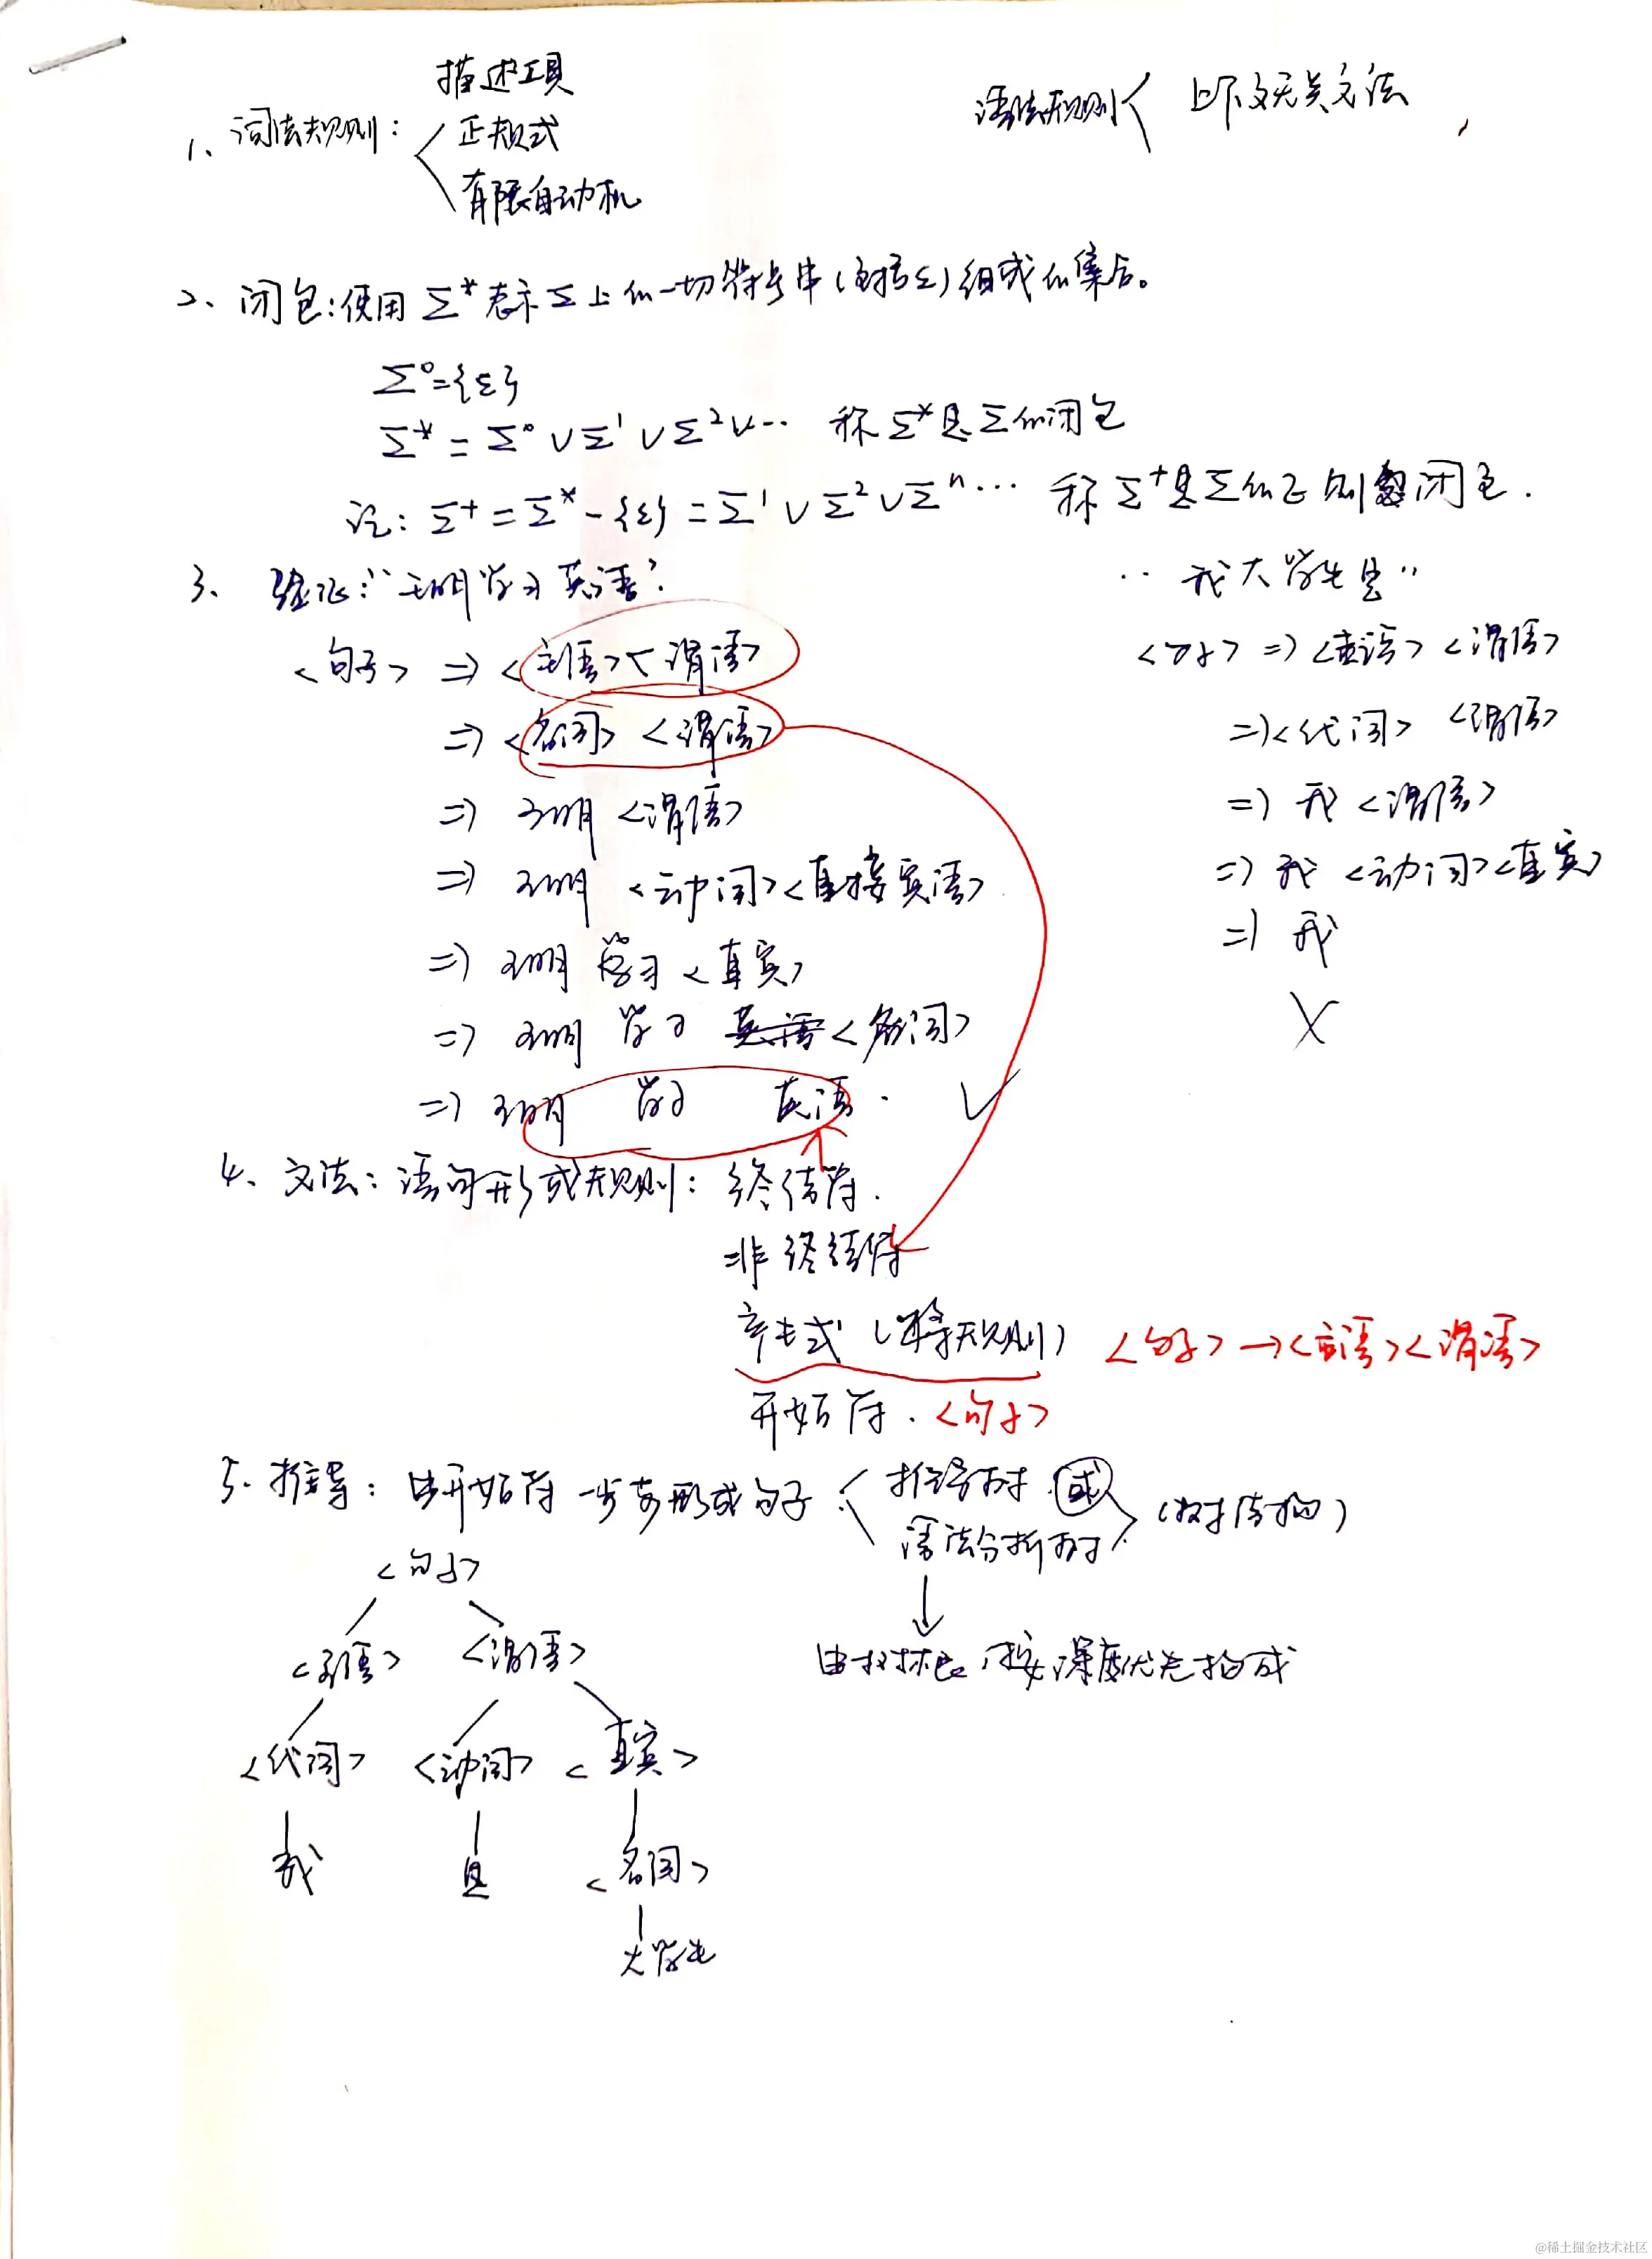 描述工具
1、词法规则: 正规式
有限自动机
语法规则 上下文无关文法
2、闭包:使用Σ*表示Σ上的一切符号串(包括ε)组成的集合。
Σ⁰={ε}
Σ* = Σ⁰ ∨ Σ¹ ∨ Σ² ∨ ⋯ 称Σ*是Σ的闭包
记: Σ⁺ = Σ* - {ε} = Σ¹ ∨ Σ² ∨ Σⁿ ⋯ 称Σ⁺是Σ的正则闭包.
3、验证:“王明学习英语”.
<句子> => <主语><谓语>
=> <名词> <谓语>
=> 王明 <谓语>
=> 王明 <动词><直接宾语>
=> 王明 学习 <直宾>
=> 王明 学习 英语 <名词>
=> 王明 学习 英语. √
“我大学生是”
<句子> => <主语> <谓语>
=> <代词> <谓语>
=> 我 <谓语>
=> 我 <动词><直宾>
=> 我
X
4、文法: 语句形成规则: 终结符.
非终结符
产生式 (规则) <句子> → <主语><谓语>
开始符. <句子>
5. 推导: 由开始符一步步形成句子: 推导树 或
语法分析树 (树结构)
↓
由树根,按深度优先构成
<句子>
<主语> <谓语>
<代词> <动词> <直宾>
我 是 <名词>
大学生
@稀土掘金技术社区